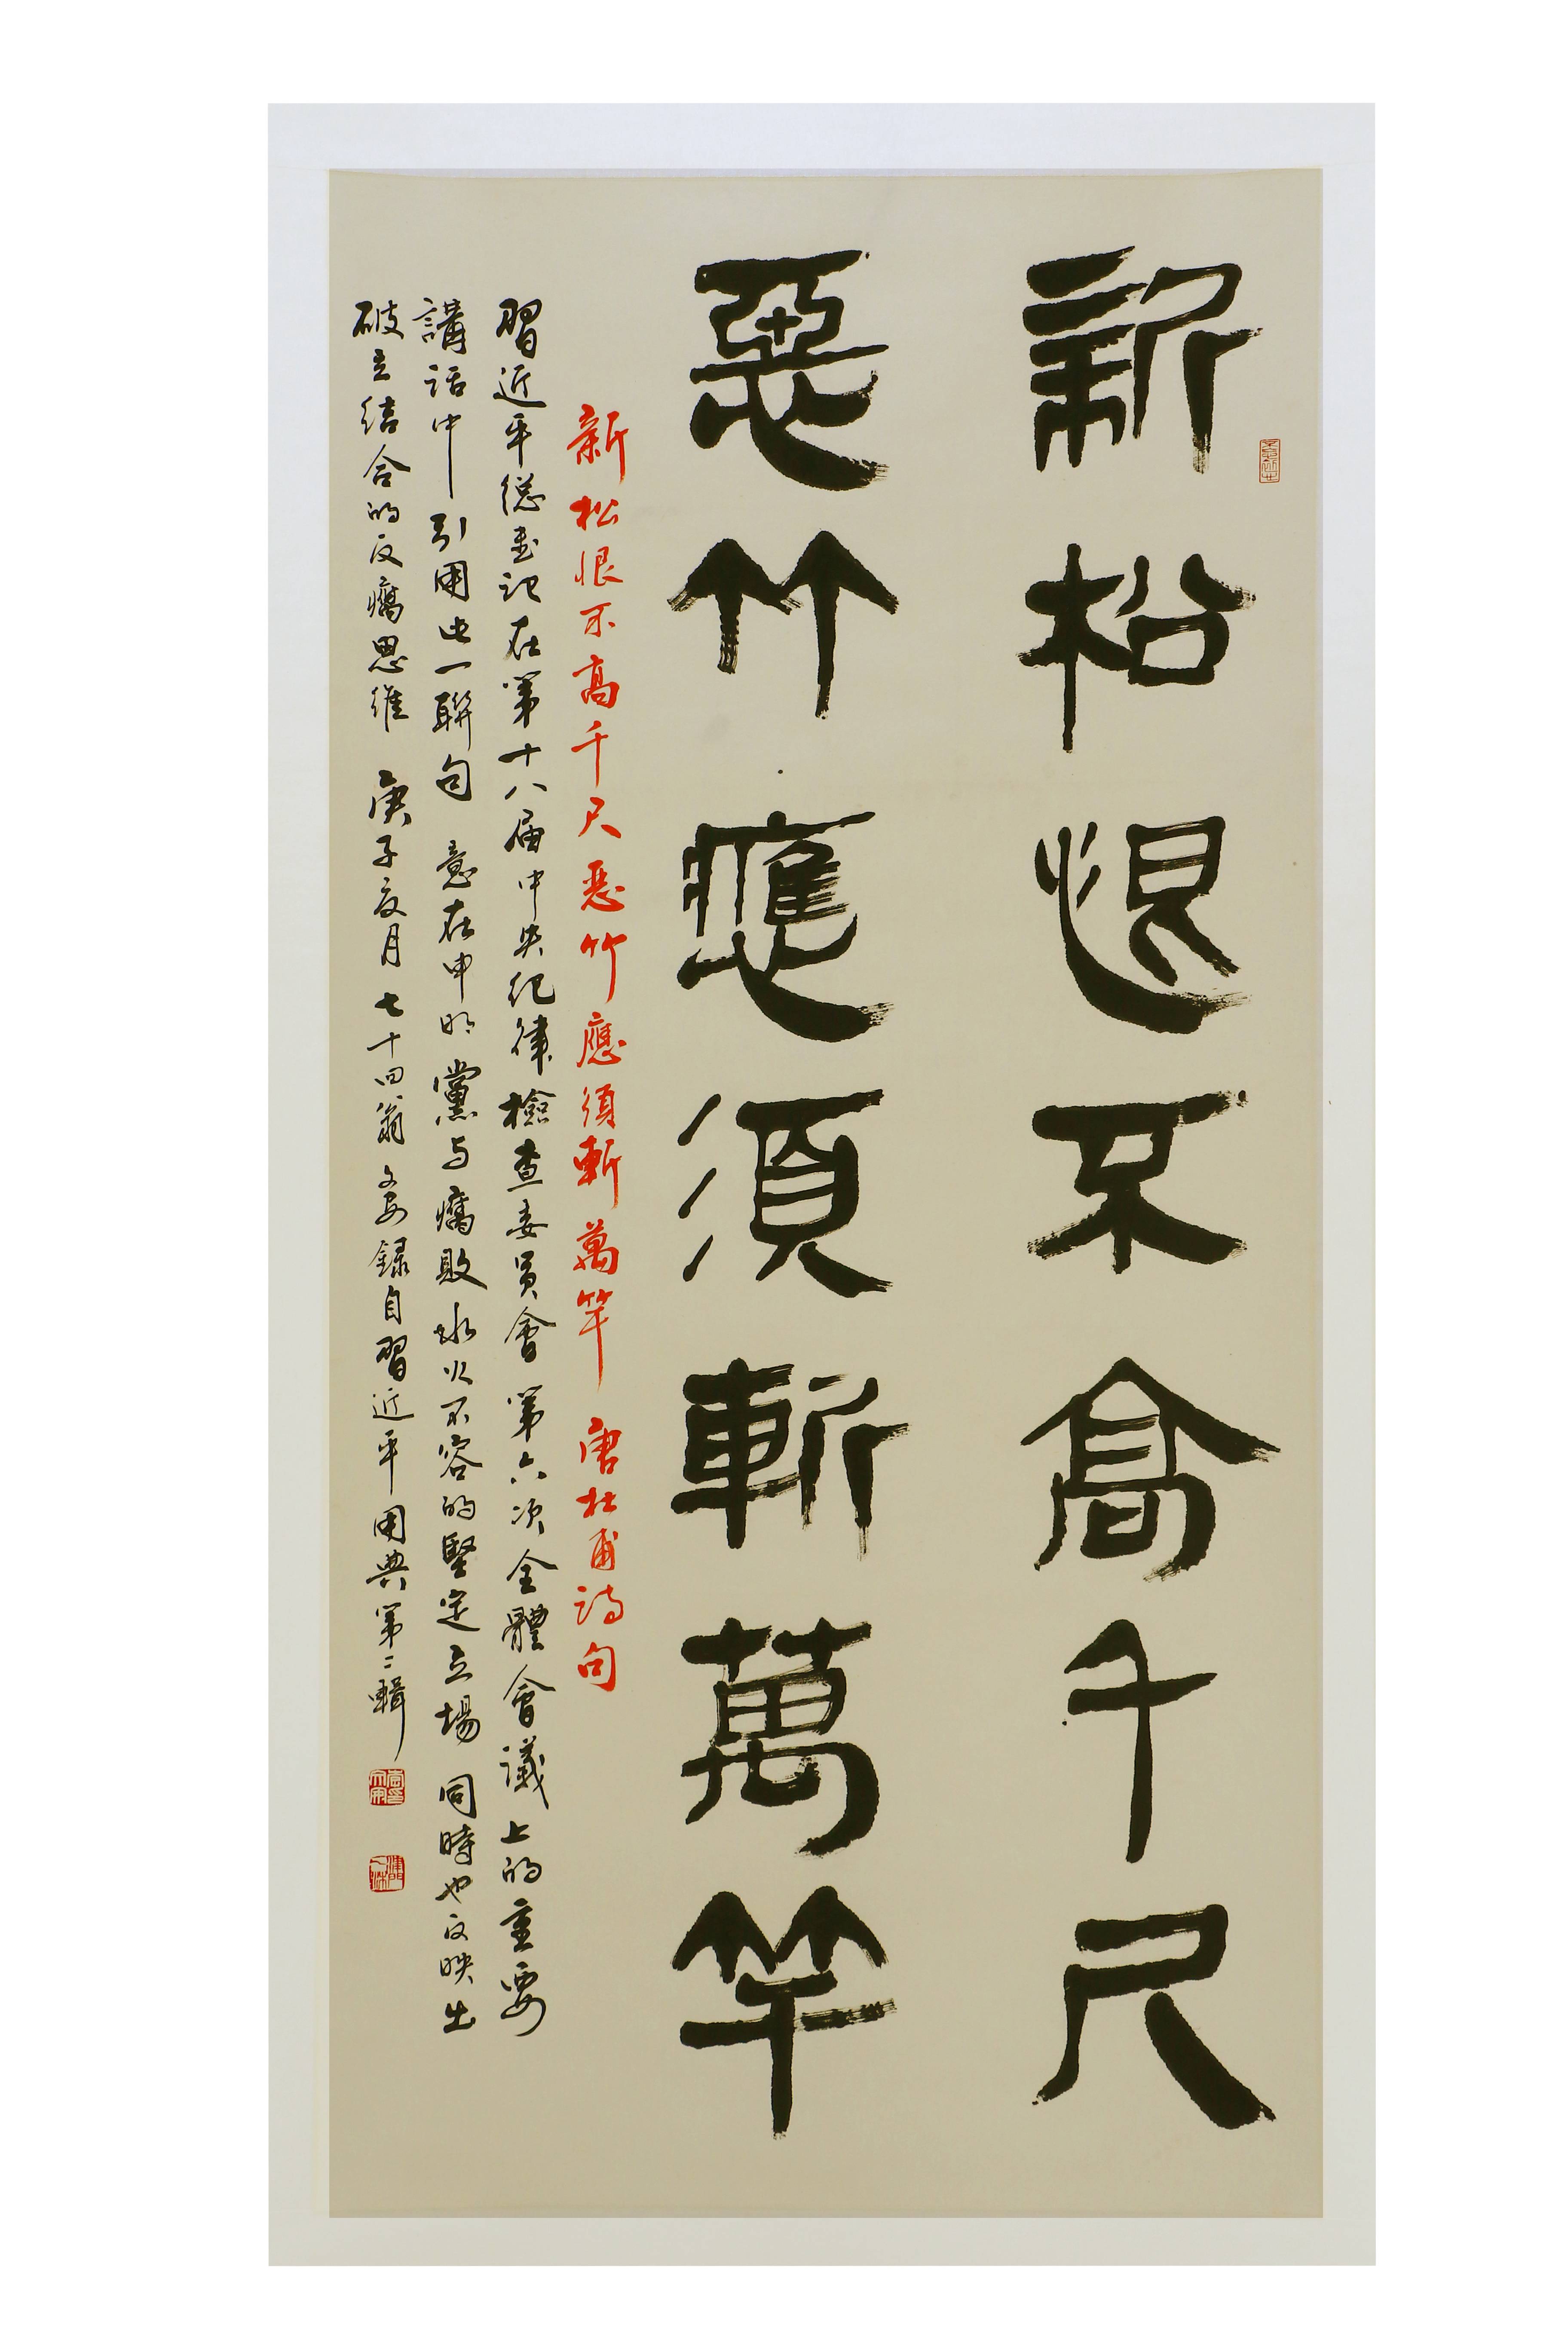 新松恨不高千尺
惡竹應須斬萬竿
新松恨不高千尺惡竹應須斬萬竿 唐杜甫詩句
習近平總書記在第十八屆中央紀律檢查委員會第六次全體會議上的重要
講話中引用此一聯句 意在申明黨与腐敗水火不容的堅定立場 同時也反映出
破立結合的反腐思維 庚子夏月 七十四翁 録自習近平用典第二輯